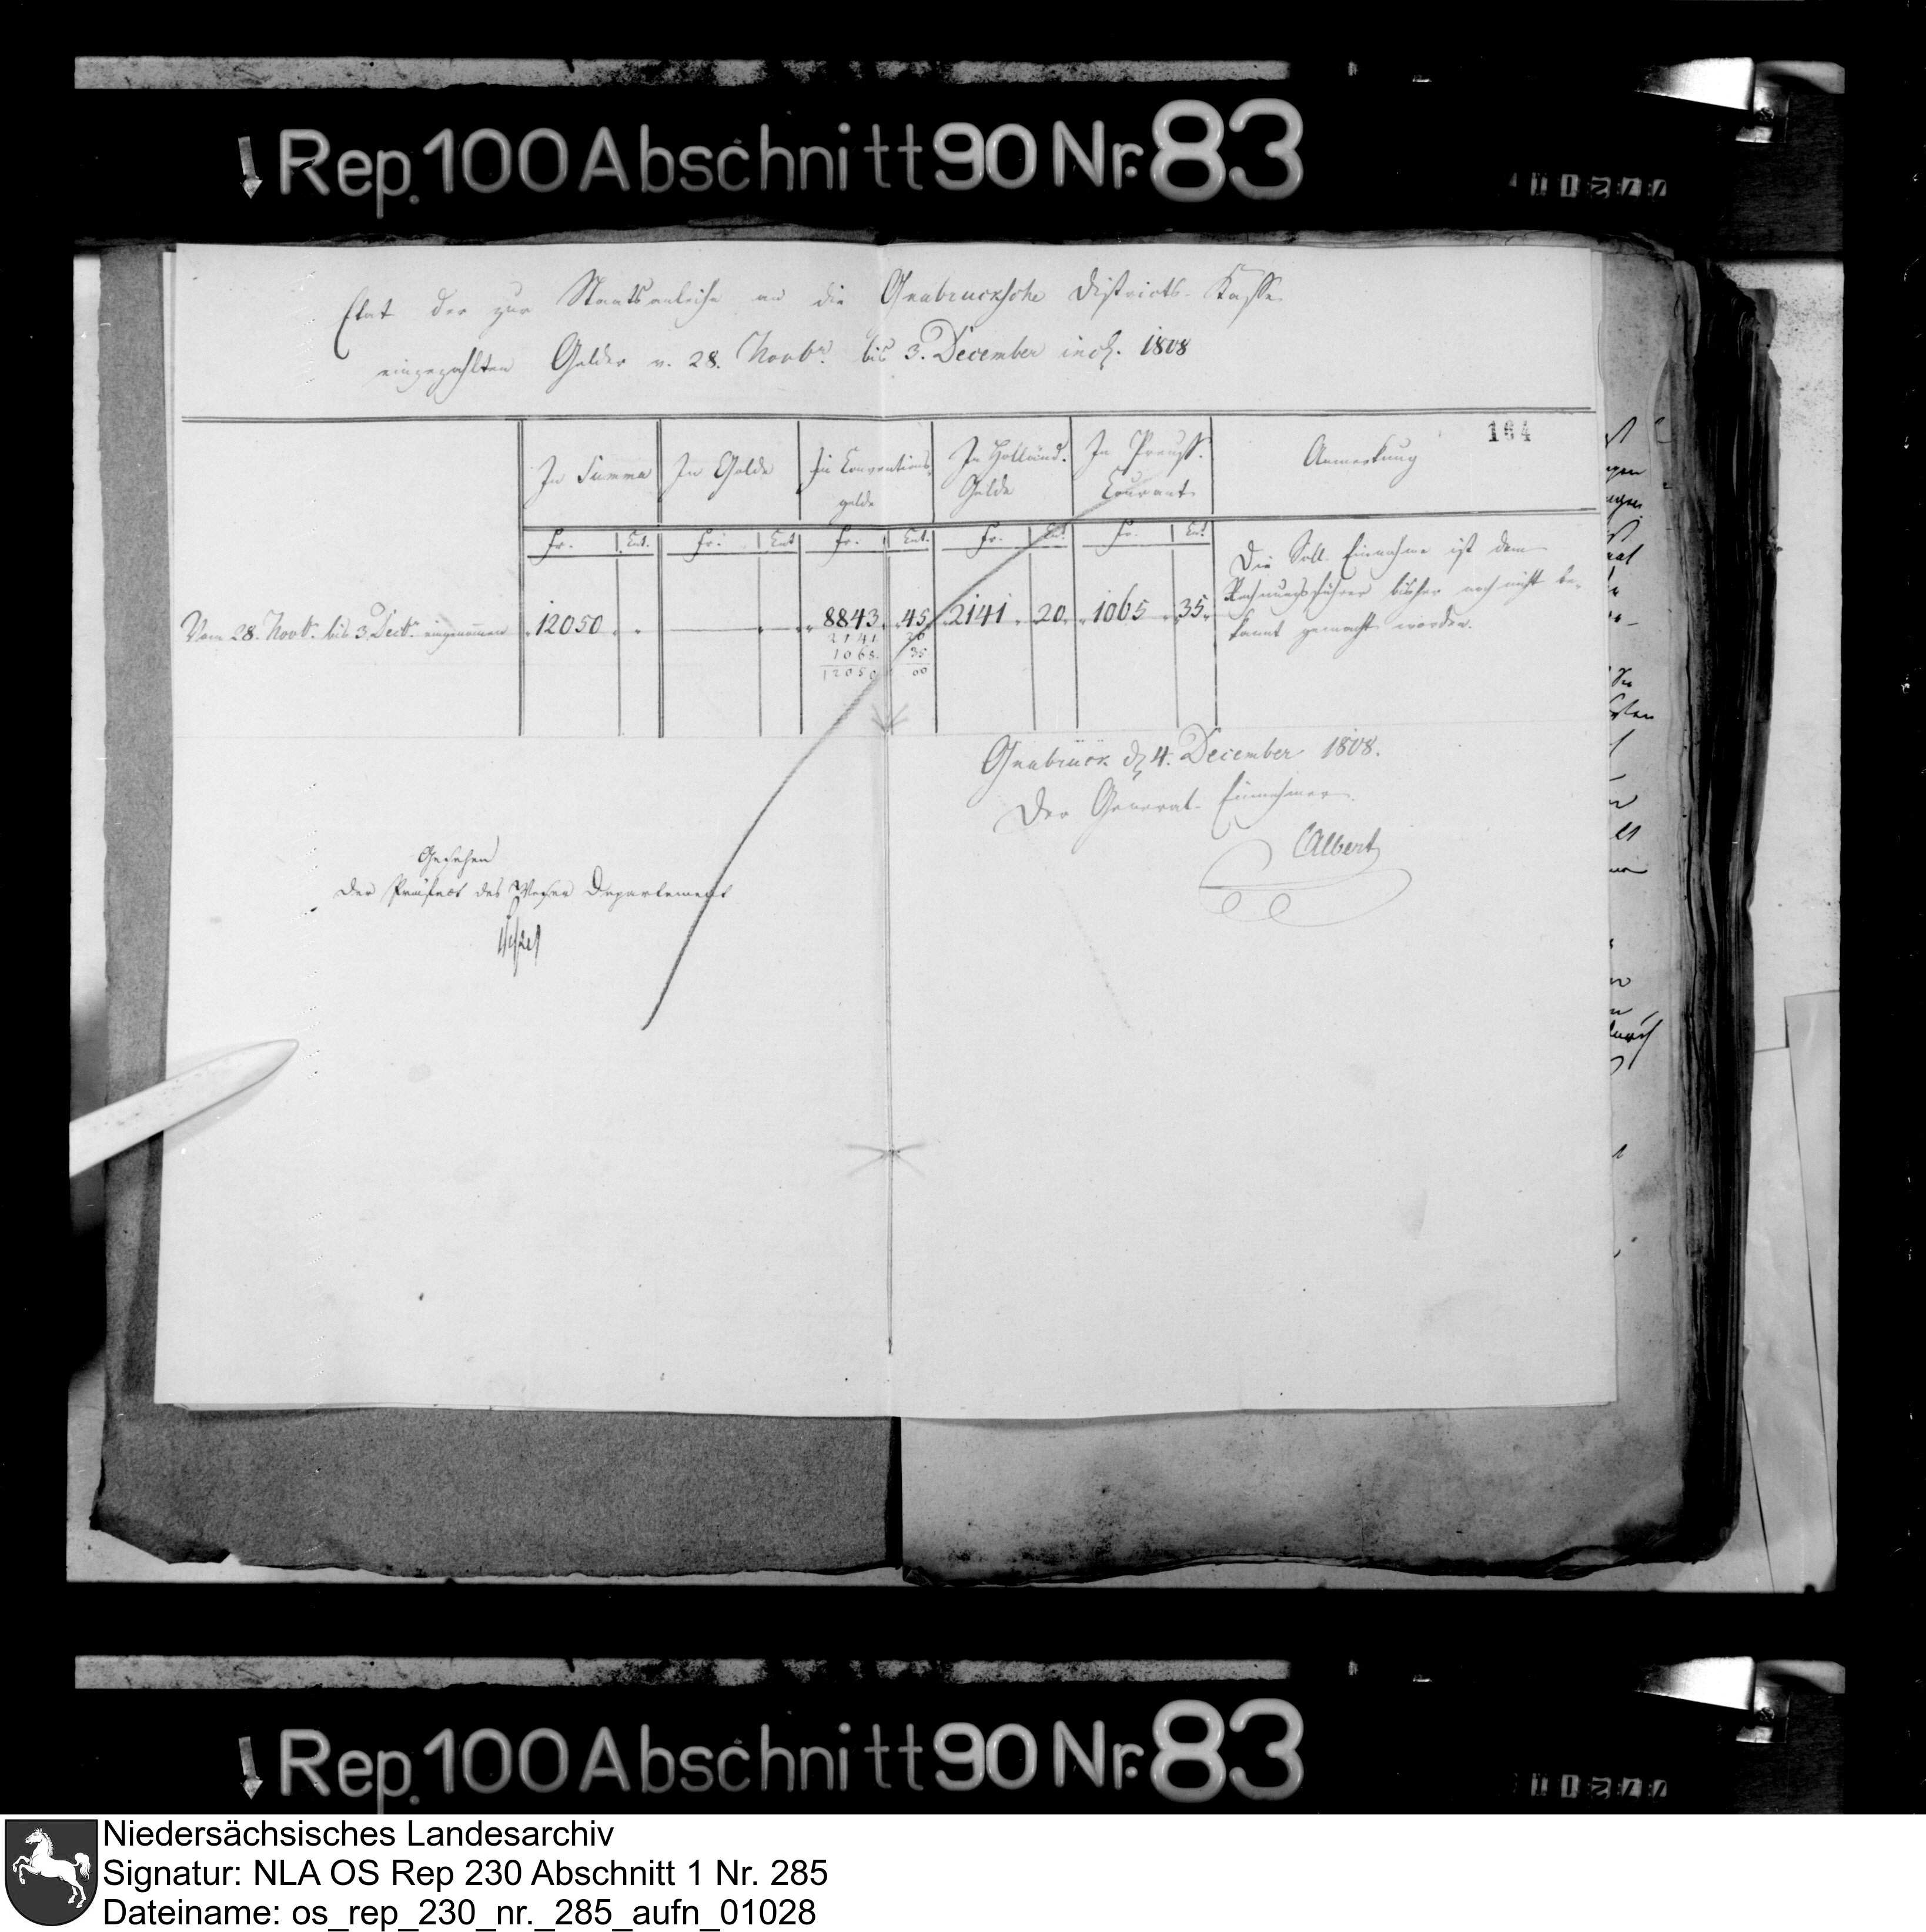 Rep. 100 Abschnitt 90 Nr. 83
Etat der zur Staatsanleihe an die Osnabrücksche Districts-Kasse
eingezahlten Gelder v. 28. Novbr. bis 3. December incl. 1808
164
In Summa
In Golde
In Conventions-
gelde
In Holländ.
Gelde
In Preuss.
Courant
Anmerkung
Fr. Cnt. Fr. Cnt Fr. Cnt. Fr. Cnt. Fr. Cnt.
Vom 28. Novbr. bis 3. Decbr. eingenommen 12050 8843 45 2141 20 1065 35
2141 20
1065 35
12050 00
Die Soll-Einnahme ist dem
Rechnungsführer bisher noch nicht be-
kannt gemacht worden.
Osnabrück d. 4. December 1808.
Der General-Einnehmer
CAlbert
Gesehen
Der Präfect des Weser Departement
Rep. 100 Abschnitt 90 Nr. 83
Niedersächsisches Landesarchiv
Signatur: NLA OS Rep 230 Abschnitt 1 Nr. 285
Dateiname: os_rep_230_nr._285_aufn_01028